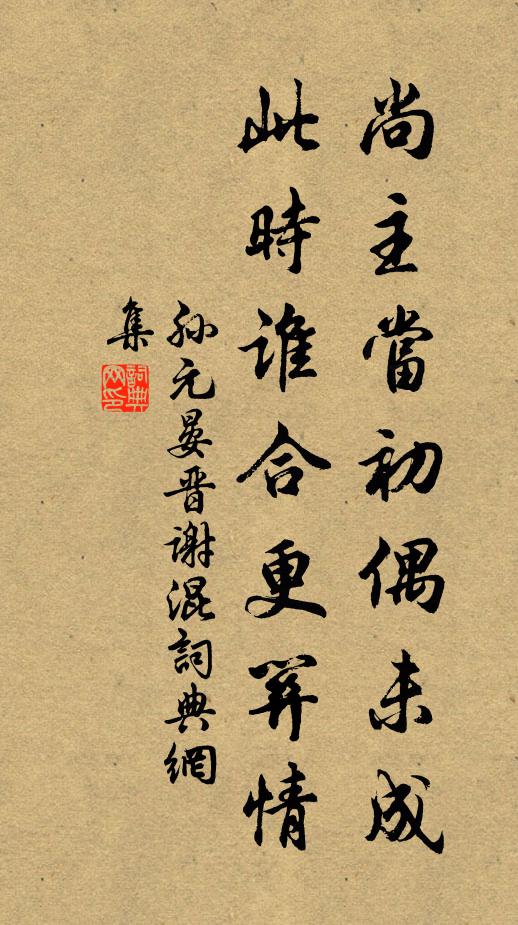 尚主當初偶未成
此時誰合更關情
孫元晏晉謝混詞典網
集
詞典
网印